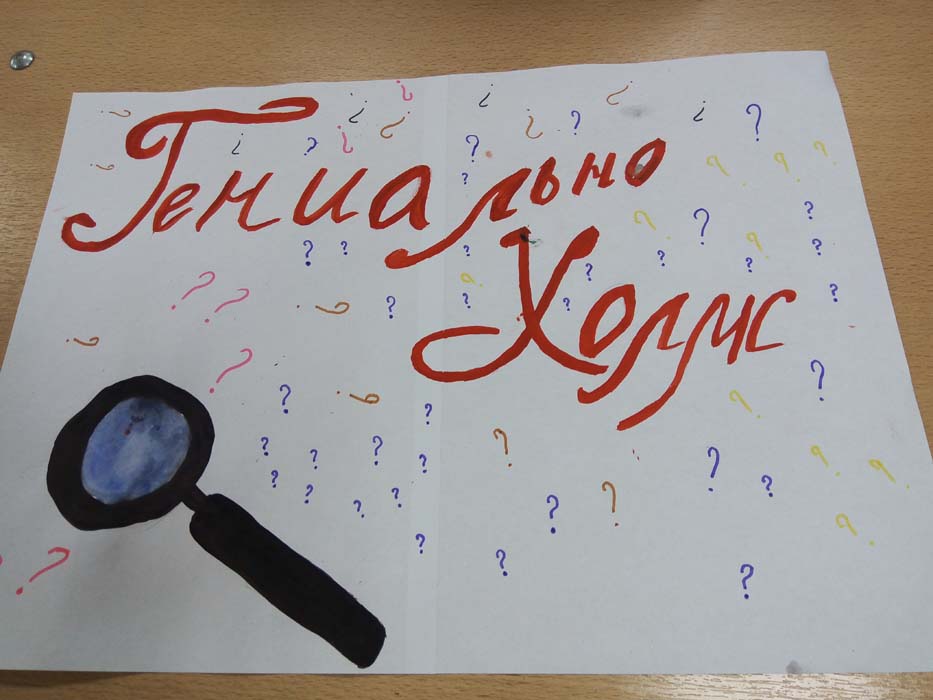 Гениально
Холмс